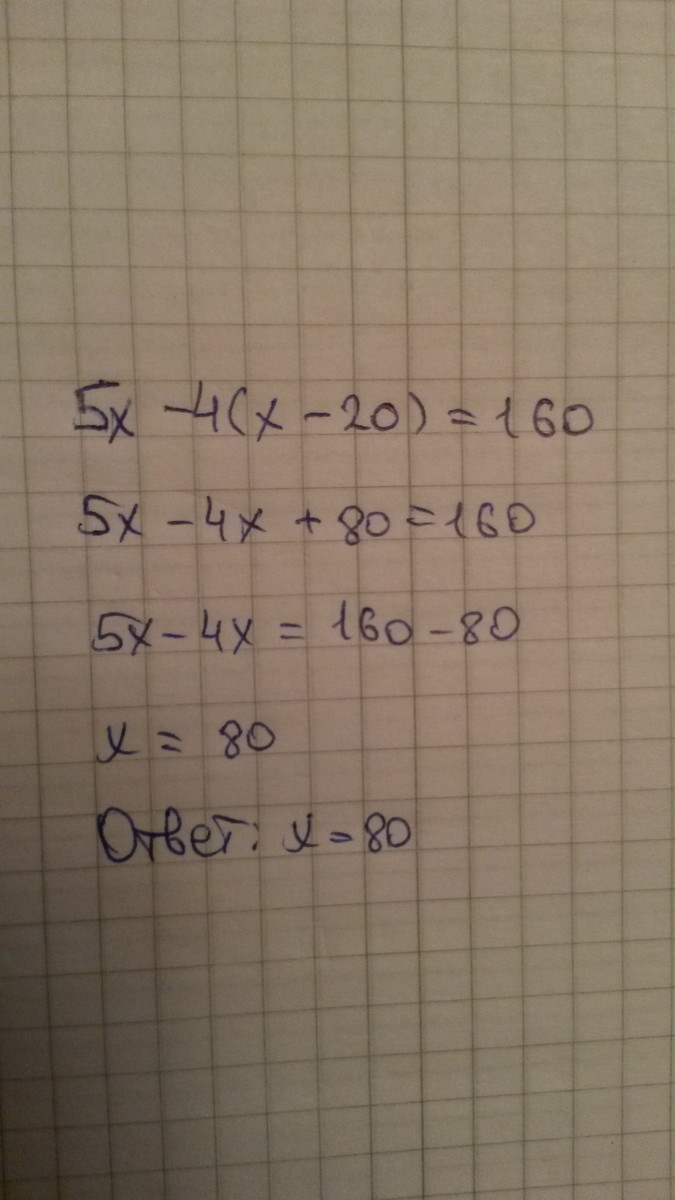 5x -4(x -20) = 160
5x -4x + 80 = 160
5x - 4x = 160 - 80
x = 80
Ответ: x = 80